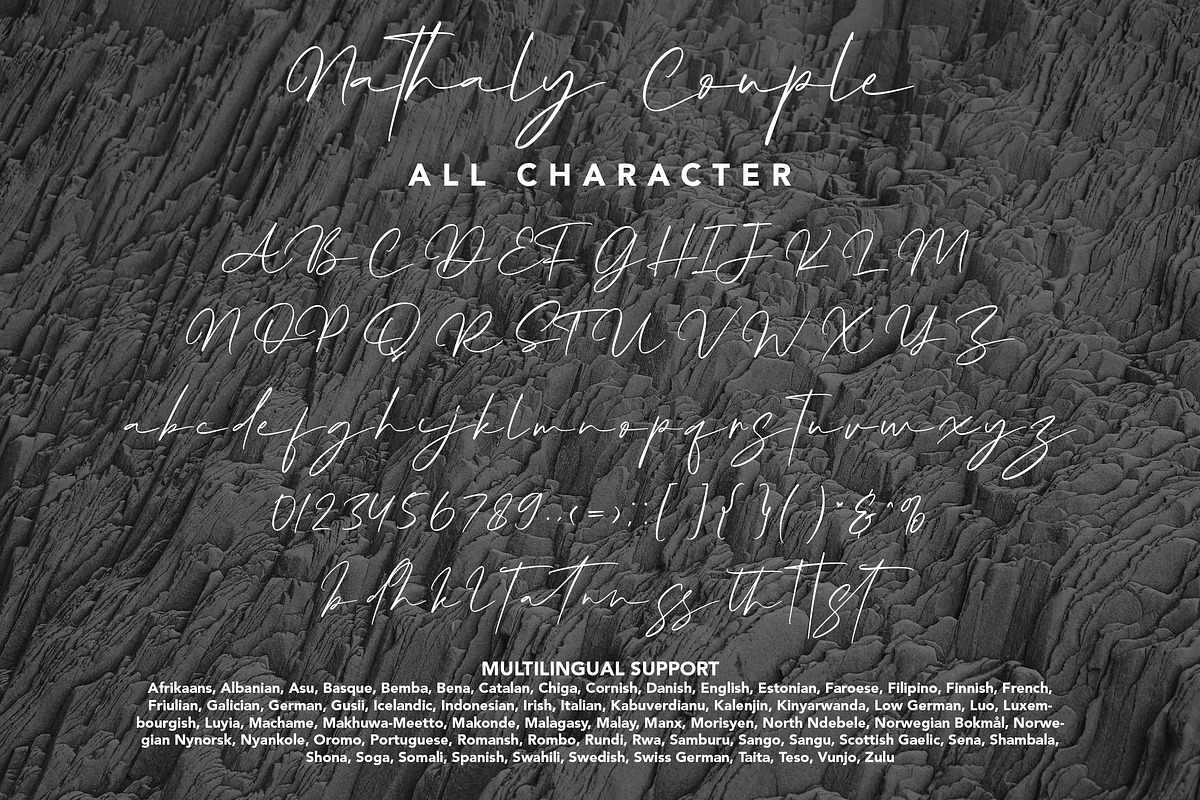 Nathaly Couple
ALL CHARACTER
A B C D E F G H I J K L M
N O P Q R S T U V W X Y Z
a b c d e f g h i j k l m n o p q r s t u v w x y z
0 1 2 3 4 5 6 7 8 9 . , ‹ = › ; : [ ] { } ( ) " & ^ %
MULTILINGUAL SUPPORT
Afrikaans, Albanian, Asu, Basque, Bemba, Bena, Catalan, Chiga, Cornish, Danish, English, Estonian, Faroese, Filipino, Finnish, French,
Friulian, Galician, German, Gusii, Icelandic, Indonesian, Irish, Italian, Kabuverdianu, Kalenjin, Kinyarwanda, Low German, Luo, Luxem-
bourgish, Luyia, Machame, Makhuwa-Meetto, Makonde, Malagasy, Malay, Manx, Morisyen, North Ndebele, Norwegian Bokmål, Norwe-
gian Nynorsk, Nyankole, Oromo, Portuguese, Romansh, Rombo, Rundi, Rwa, Samburu, Sango, Sangu, Scottish Gaelic, Sena, Shambala,
Shona, Soga, Somali, Spanish, Swahili, Swedish, Swiss German, Taita, Teso, Vunjo, Zulu